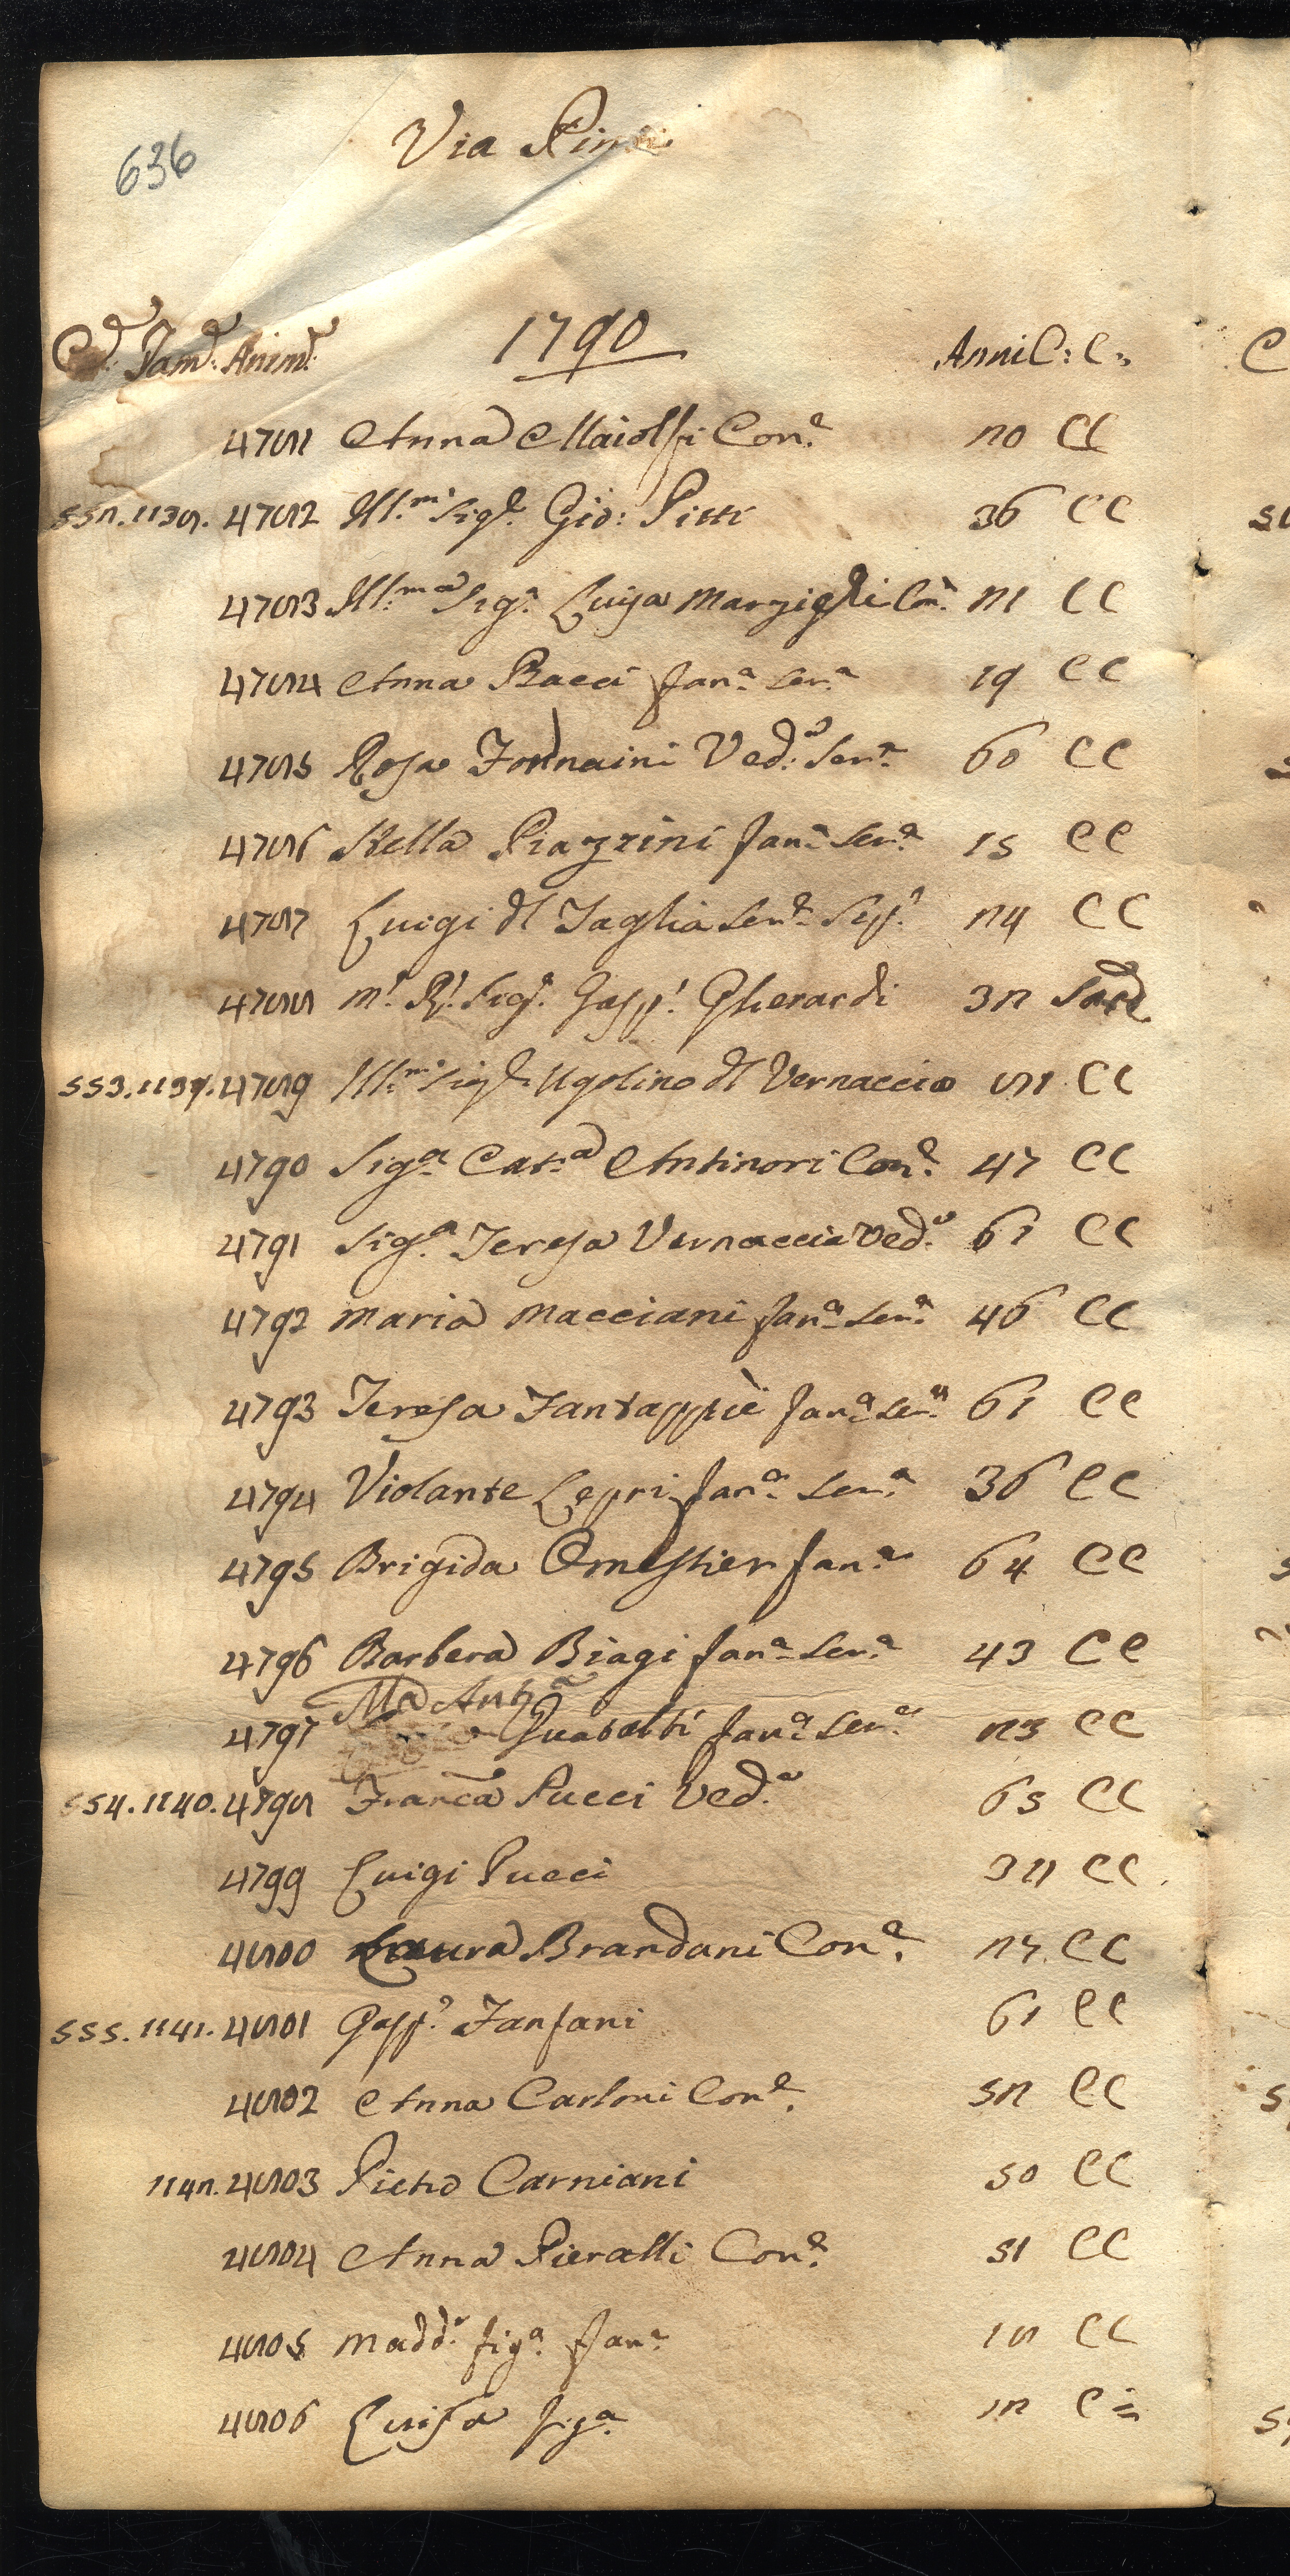 636
Via Pinti
Cas.e Fam.e Anim.e 1790 Anni C: C:
4781 Anna Maiolfi Con.e 20 CC
552.1138. 4782 Ill.mo Sig.e Gio: Pitti 36 CC
4783 Ill.ma Sig.a Luisa Marzighi Con.e 21 CC
4784 Anna Bacci fan.a ser.a 19 CC
4785 Rosa Fornaini Ved.a Ser.a 60 CC
4786 Stella Piazzini fan.a Ser.a 15 CC
4787 Luigi del Taglia Ser.e 24 CC
4788 M.o R.o Sig.e Gasp.o Gherardi 32 Sacd
553.1139. 4789 Ill.mo Sig.e Ugolino del Vernaccia 81 CC
4790 Sig.a Cat.a Antinori Con.e 47 CC
4791 Sig.a Teresa Vernaccia Ved.a 61 CC
4792 Maria Macciani fan.a Ser.a 46 CC
4793 Teresa Fantappiè fan.a ser.a 61 CC
4794 Violante Lepri fan.a Ser.a 36 CC
4795 Brigida Omestier fan.a 64 CC
4796 Barbera Biagi fan.a Ser.a 43 CC
M.a Ant.a
4797 Guasalti fan.a Ser.a 23 CC
554.1140. 4798 Franca Pucci Ved.a 65 CC
4799 Luigi Pucci 32 CC
4800 Laura Brandani Con.e 27 CC
555.1141. 4801 Gasp.o Fanfani 61 CC
4802 Anna Carloni Con.e 52 CC
1142. 4803 Pietro Carniani 50 CC
4804 Anna Pieralli Con.e 51 CC
4805 Madd.a fig.a fan.a 18 CC
4806 Luisa fig.a 12 C =